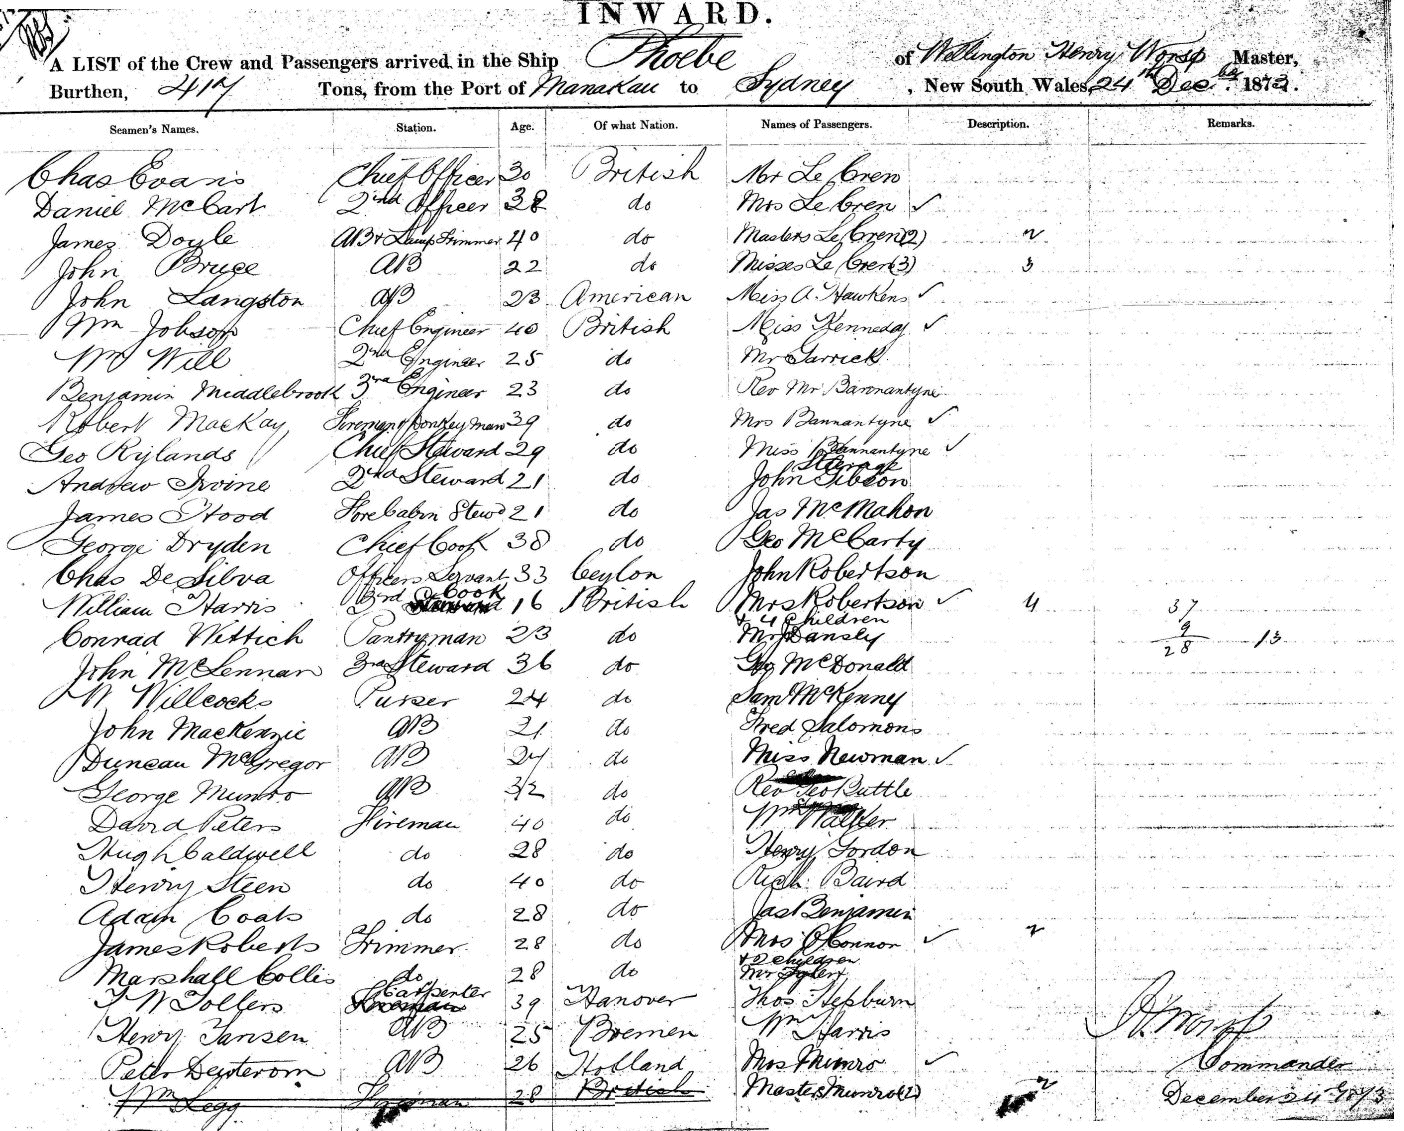 INWARD.
A LIST of the Crew and Passengers arrived in the Ship Phoebe of Wellington Henry Worsp Master,
Burthen, 417 Tons, from the Port of Manakau to Sydney, New South Wales, 24th Decber 1873.
Seamen's Names. Station. Age. Of what Nation. Names of Passengers. Description. Remarks.
Chas Evans Chief Officer 30 British Mr Le Cren
Daniel McCart 2nd Officer 38 do Mrs Le Cren ✓
James Doyle AB & Lamp Trimmer 40 do Masters Le Cren (2) 2
John Bruce AB 22 do Misses Le Cren (3) 3
John Langston AB 23 American Miss A. Hawkens ✓
Wm Jobson Chief Engineer 40 British Miss Kenneday ✓
Wm Will 2nd Engineer 25 do Mr Garrick
Benjamin Middlebrook 3rd Engineer 23 do Rev Mr Baronantyne
Robert MacKay Fireman & Donkey man 39 do Mrs Bannantyne ✓
Geo Rylands Chief Steward 29 do Miss Bannantyne ✓
Steerage
Andrew Irvine 2nd Steward 21 do John Gibson
James Hood Fore Cabin Stewd 21 do Jas McMahon
George Dryden Chief Cook 38 do Geo McCarty
Chas De Silva Officers Servant 33 Ceylon John Robertson
William Harris 3rd Cook 16 British Mrs Robertson ✓ 4 37
& 4 Children 9
Conrad Wettich Pantryman 23 do Mr J Dansly 28 13
John McLennan 3rd Steward 36 do Geo McDonald
W Willcocks Purser 24 do Sam McKenny
John MacKenzie AB 21 do Fred Salomons
Duncan McGregor AB 24 do Miss Newman ✓
George Munro AB 32 do Rev Geo Buttle
David Peters Fireman 40 do Wm Walker
Hugh Caldwell do 28 do Henry Gordon
Henry Steen do 40 do Rich Baird
Adam Coats do 28 do Jas Benjamin
James Roberts Trimmer 28 do Mrs O'Connor ✓ 2
& 2 Children
Marshall Collis do 28 do Mr
T W Tollers Carpenter 39 Hanover Thos Hepburn
Henry Jansen AB 25 Bremen Wm Harris
Peter Deuterom AB 26 Holland Mrs Munro ✓
Wm Legg Fireman 28 British Masters Munro (2) 2
H. Worsp
Commander
December 24th 1873